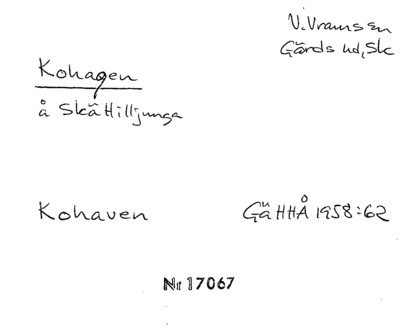 V. Vram s sn
Gärds hd, Sk
Kohagen
å Skättilljunga
Kohaven
GäHHÅ 1958:62
Nr 17067